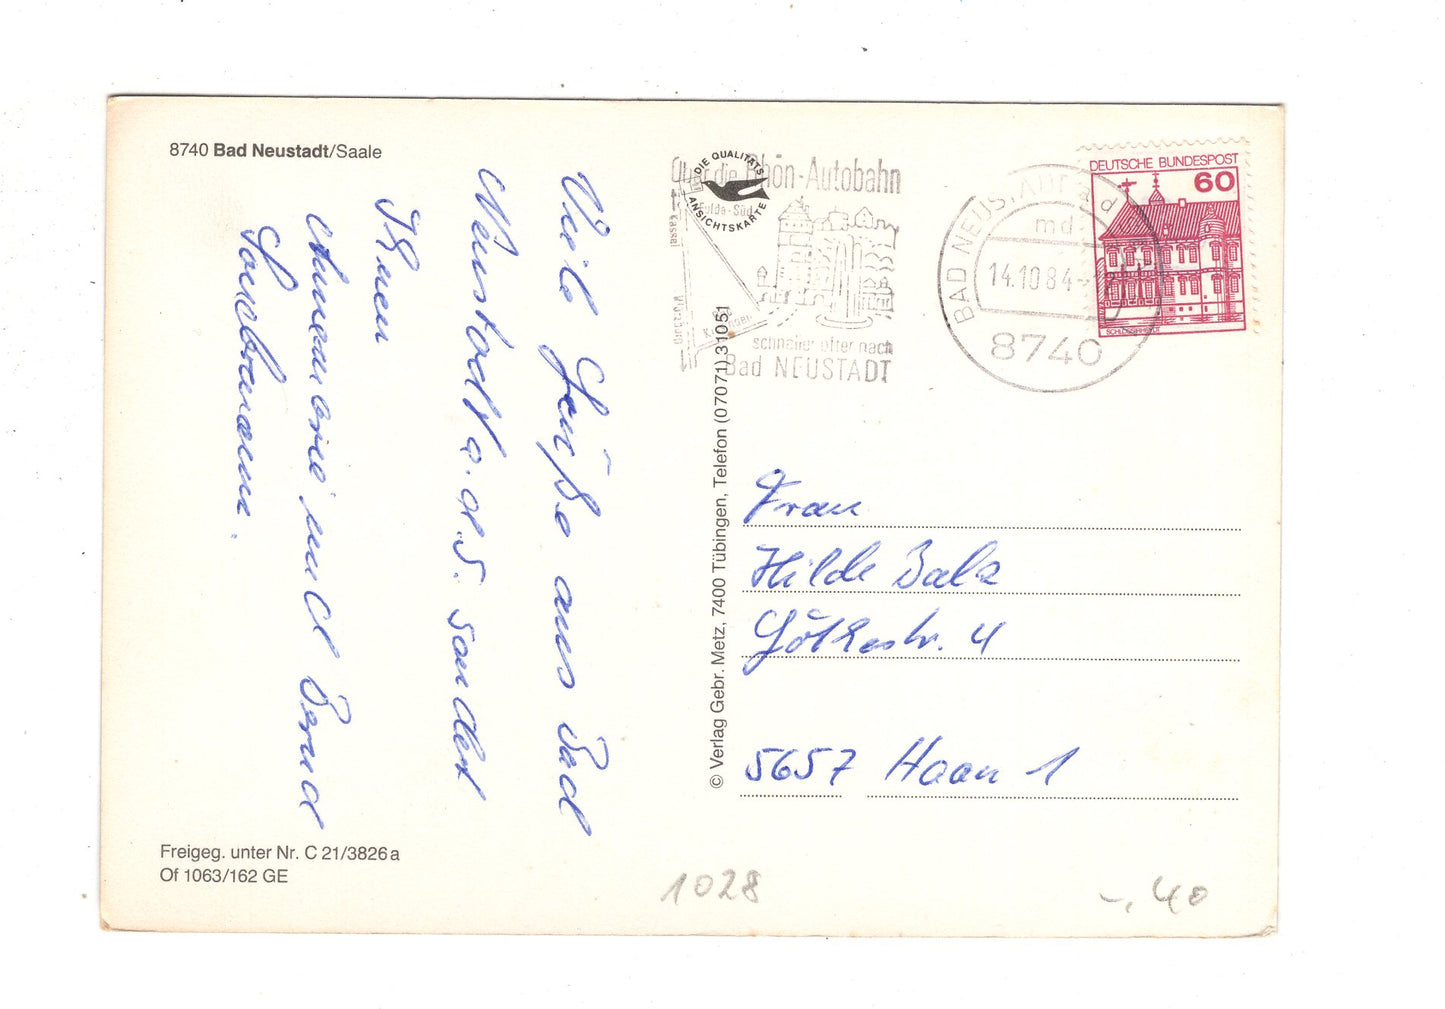 8740 Bad Neustadt/Saale
Viele Grüße aus Bad
Neustadt a. d. S. sendet
Ihnen
Annemarie und Bernd
DIE QUALITÄTS
ANSICHTSKARTE
Über die Rhön-Autobahn
Fulda-Süd
Kassel
Würzburg
schneller öfter nach
Bad NEUSTADT
BAD NEUSTADT a d
md
14.10.84
8740
DEUTSCHE BUNDESPOST
60
SCHLOSS RHEYDT
© Verlag Gebr. Metz, 7400 Tübingen, Telefon (07071) 31051
Frau
Hilde Balz
Göthestr. 4
5657 Haan 1
Freigeg. unter Nr. C 21/3826 a
Of 1063/162 GE
1028
-.40